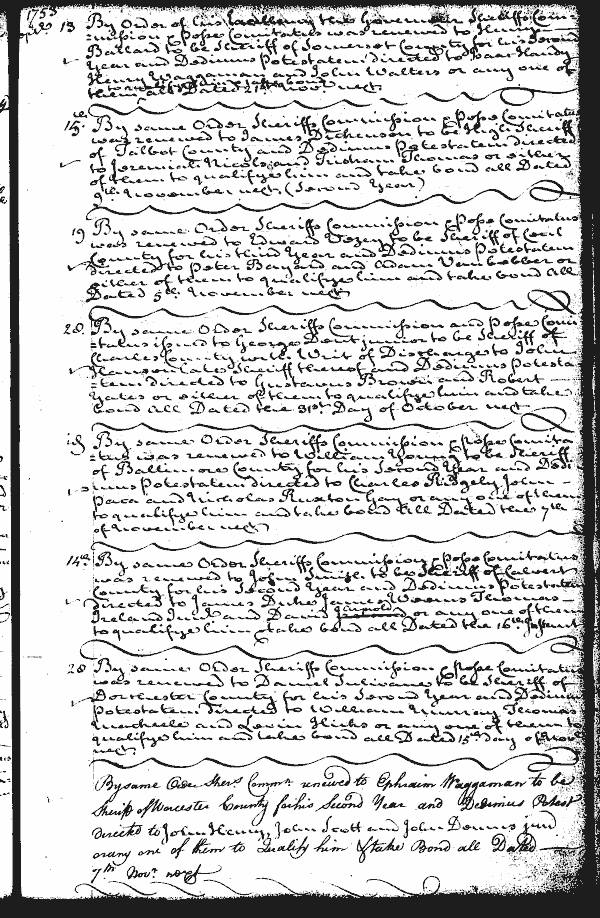 1753
13 By Order of his Excellency the Governor Sheriffs Com=
=mission & Posse Comitatus was renewed to Henry
Ballard to be Sheriff of Somerset County for his Second
Year and Dedimus Potestatem directed to Isaac Handy
Henry Waggaman and John Walters or any one of
them all Dated 27th Novr next
15th By same Order Sheriffs Commission & Posse Comitatus
was renewed to James Dickenson to be High Sheriff
of Talbot County and Dedimus Potestatem directed
to Jeremiah Nicols and Tristram Thomas or either
of them to qualifye him and take bond all Dated
9th November next (Second Year)
19 By same Order Sheriffs Commission & Posse Comitatus
was renewed to Edward to be Sheriff of Cecil
County for his third Year and Dedimus Potestatem
directed to Peter Bayard and Adam Vanbebber or
either of them to qualifye him and take bond All
Dated 5th November next
28 By same Order Sheriffs Commission and Posse Comi
=tatus issued to George Dent junior to be Sheriff of
Charles County with Writ of Discharge to John
late Sheriff thereof and Dedimus Potesta
=tem directed to Gustavus Brown and Robert
Yates or either of them to qualifye him and take
bond All Dated the 31st Day of October next
By same Order Sheriffs Commission & Posse Comita
=tus was renewed to William Young to be Sheriff
of Baltimore County for his Second Year and Dedi
mus Potestatem directed to Charles Ridgely John
Paca and Nicholas Ruxton Gay or any one of them
to qualifye him and take bond All Dated the 7th
of November next
14th By same Order Sheriffs Commission & Posse Comitatus
was renewed to John Smith to be Sheriff of Calvert
County for his Second Year and Dedimus Potestatem
directed to James Duke James Weems Thomas
Ireland Junr and David or any one of them
to qualifye him & take bond all Dated the 16th Instant
28 By same Order Sheriffs Commission & Posse Comitatus
was renewed to Daniel Sulivane to be Sheriff of
Dorchester County for his Second Year and Dedimus
Potestatem directed to William Murray Thomas
and Levin Hicks or any one of them to
qualifye him and take bond all Dated 15th Day of Novr
next
By same Order Shers Commn renewed to Ephraim Waggaman to be
Sheriff of Worcester County for his Second Year and Dedimus Potest
directed to John Henry, John Scott and John Dennis junr
or any one of them to Qualify him & take Bond all Dated
7th Novr next